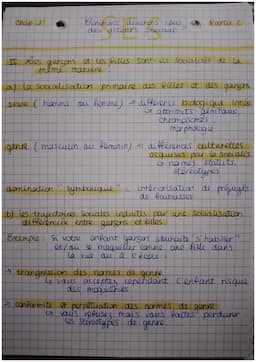 Chap 2 : Comment devenons-nous Partie 2
des acteurs sociaux
SES
II Les garçons et les filles sont ils socialisés de la
même manière ?
a) La socialisation primaire des filles et des garçons
sexe (homme ou femme) → différence biologique innée
→ attributs génitaux,
chromosomes
morphologie
genre (masculin ou féminin) → différences culturelles
acquises par la société
→ normes, statuts,
stéréotypes
domination "symbolique" : intériorisation de préjugés
de
b) les trajectoires sociales induites par une socialisation
différenciée entre garçons et filles
Exemple : Si votre enfant garçon souhaite s'habiller
et/ou se maquiller comme une fille dans
la rue ou à l'école
→ transgression des normes de genre
↳ vous acceptez cependant l'enfant risque
des moqueries
→ conformité et perpétuation des normes de genre
↳ vous refusez mais vous faites perdurer
les stéréotypes de genre